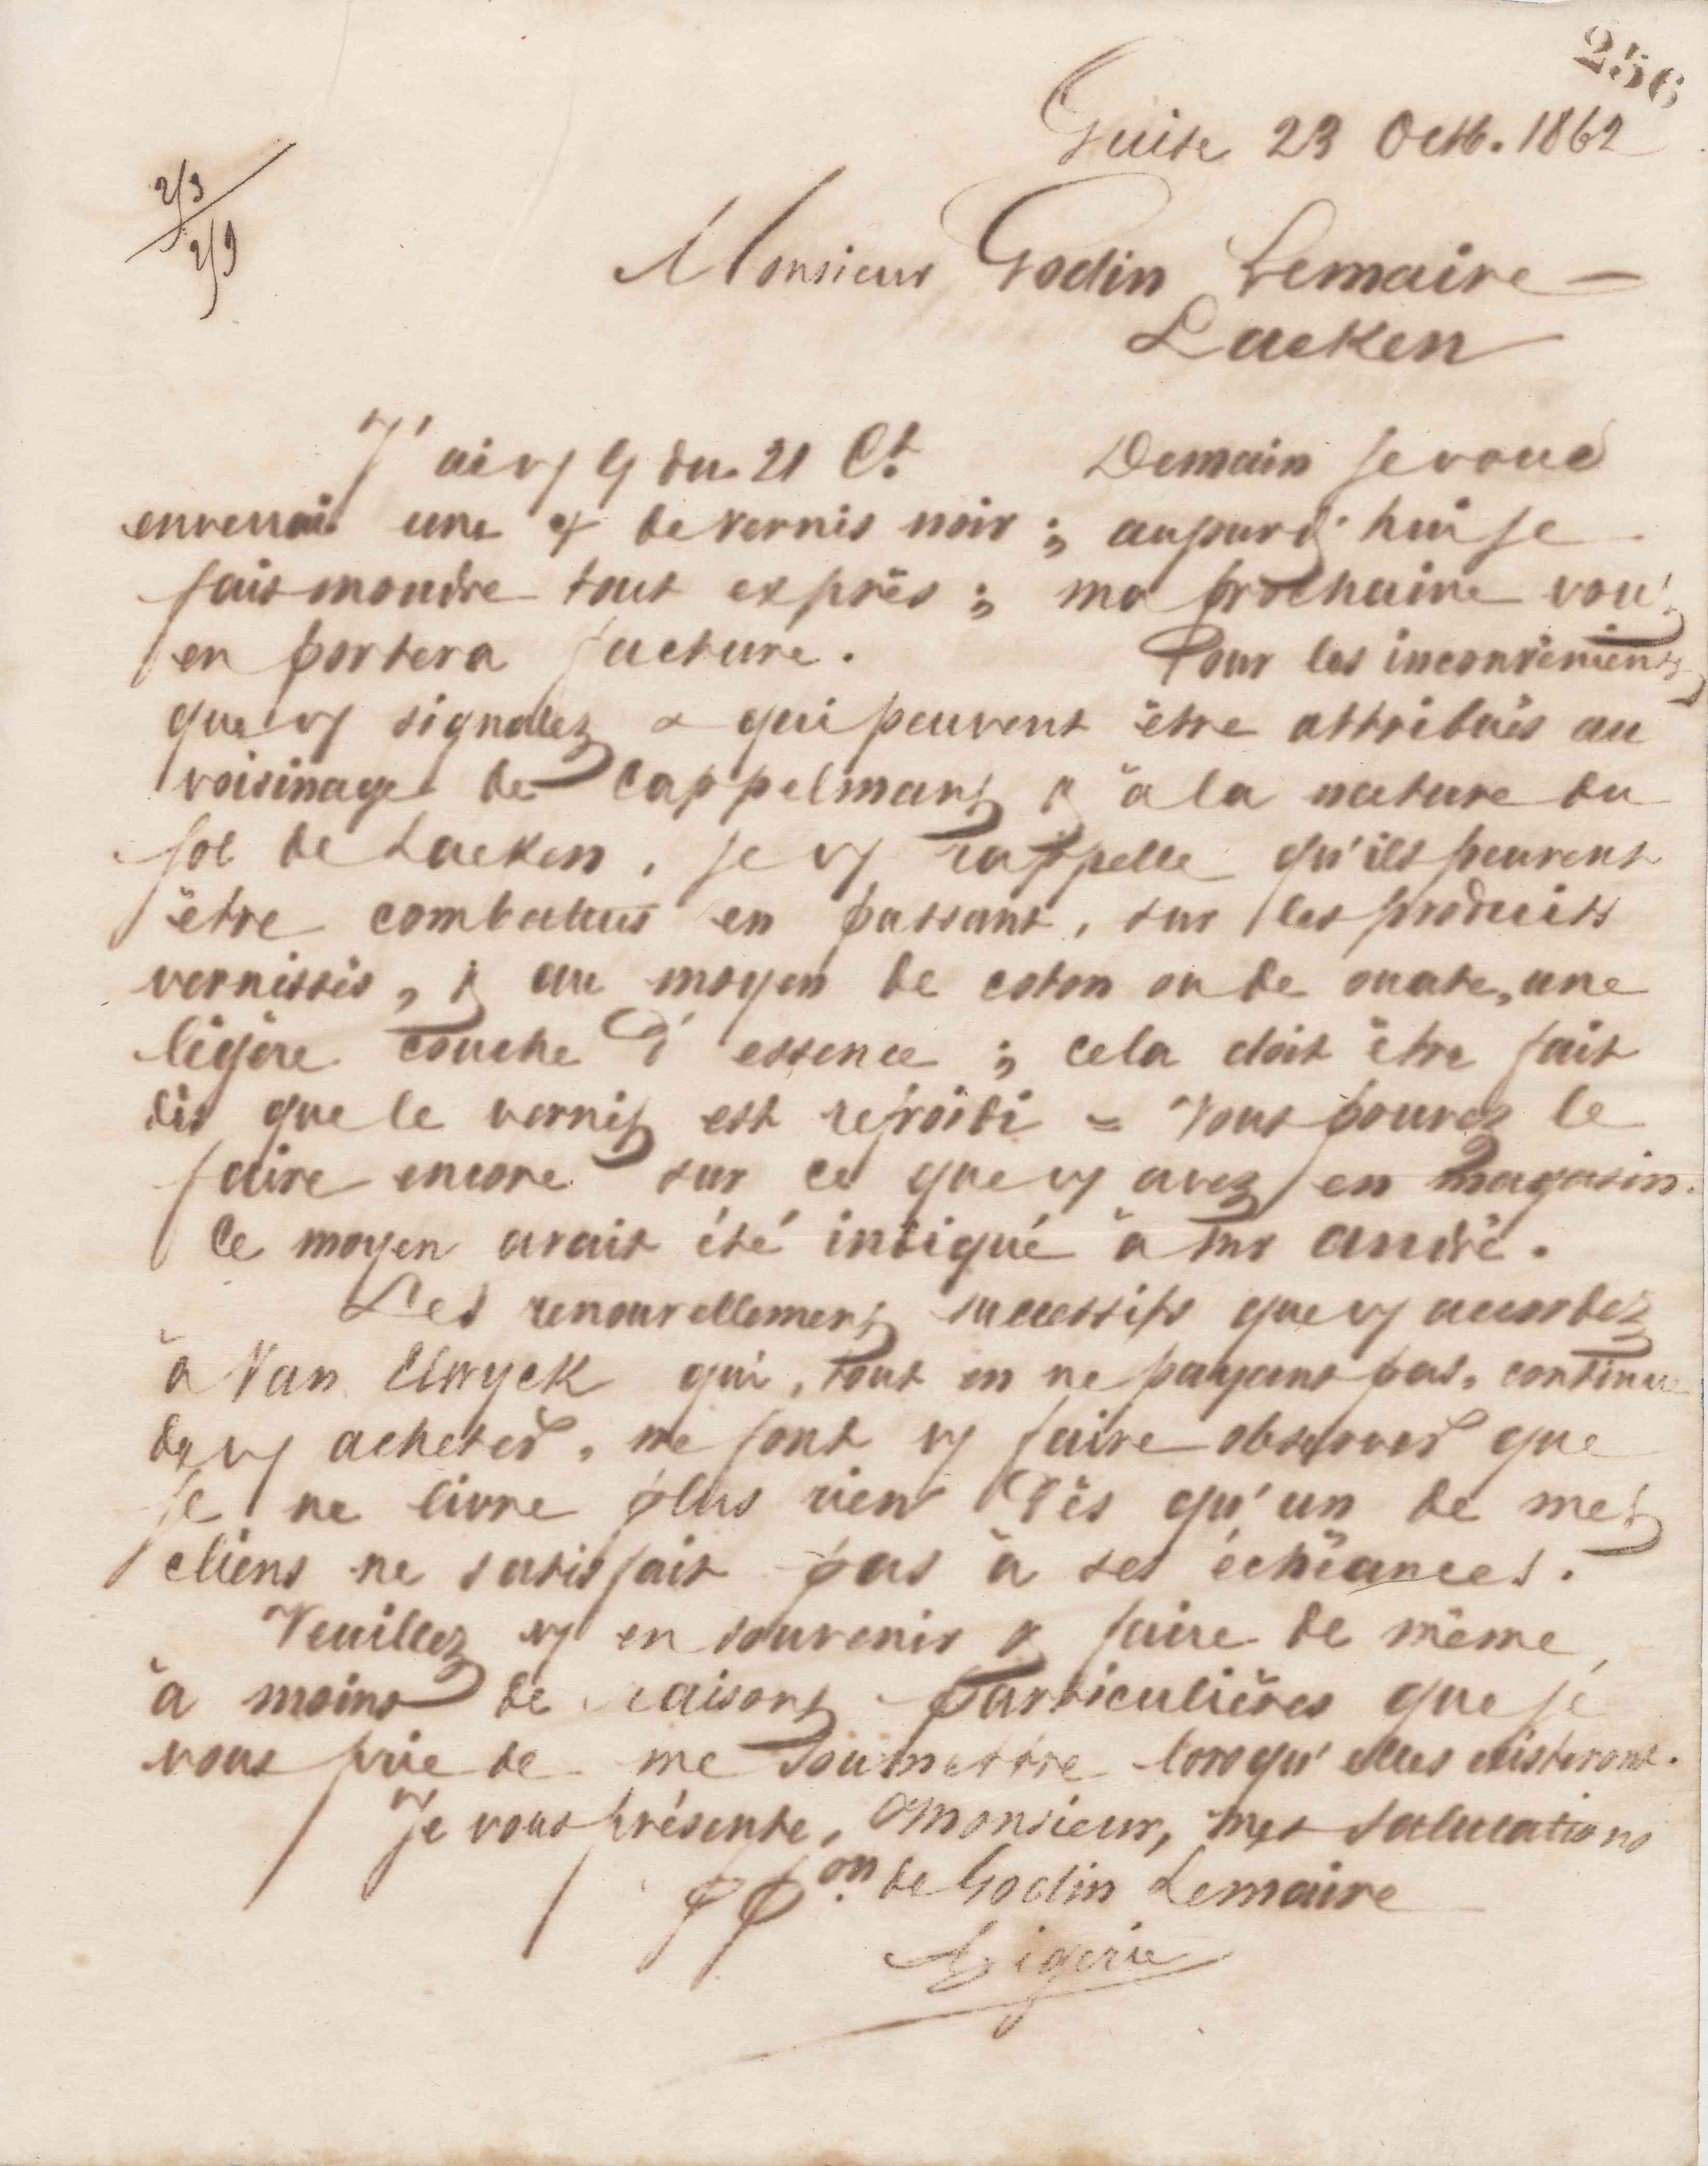 256
Guise 23 Octb. 1862
2/3
2/9
Monsieur Godin Lemaire
Laeken
J'ai vs du 21 Ct Demain je vous
enverrai une de vernis noir ; aujourd'hui je
fais moudre tout exprès ; ma prochaine vous
en portera facture. Pour les inconvénients
que vs signalez & qui peuvent être attribués au
voisinage de Cappelmans & à la nature du
sol de Laeken, je vs rappelle qu'ils peuvent
être combattus en passant, sur les produits
vernissés, & au moyen de coton ou de ouate, une
légère couche d'essence ; cela doit être fait
dès que le vernis est refroidi = Vous pouvez le
faire encore sur ce que vs avez en magasin.
Ce moyen avait été indiqué à Mr André.
Les renouvellements successifs que vs accordez
à Van qui, tout en ne payant pas, continue
de vs acheter, me font vs faire observer que
je ne livre plus rien dès qu'un de mes
cliens ne satisfait pas à ses échéances.
Veuillez vs en souvenir & faire de même,
à moins de raisons particulières que je
vous prie de me soumettre lorsqu'elles existeront.
Je vous présente, Monsieur, mes salutations
p pon de Godin Lemaire